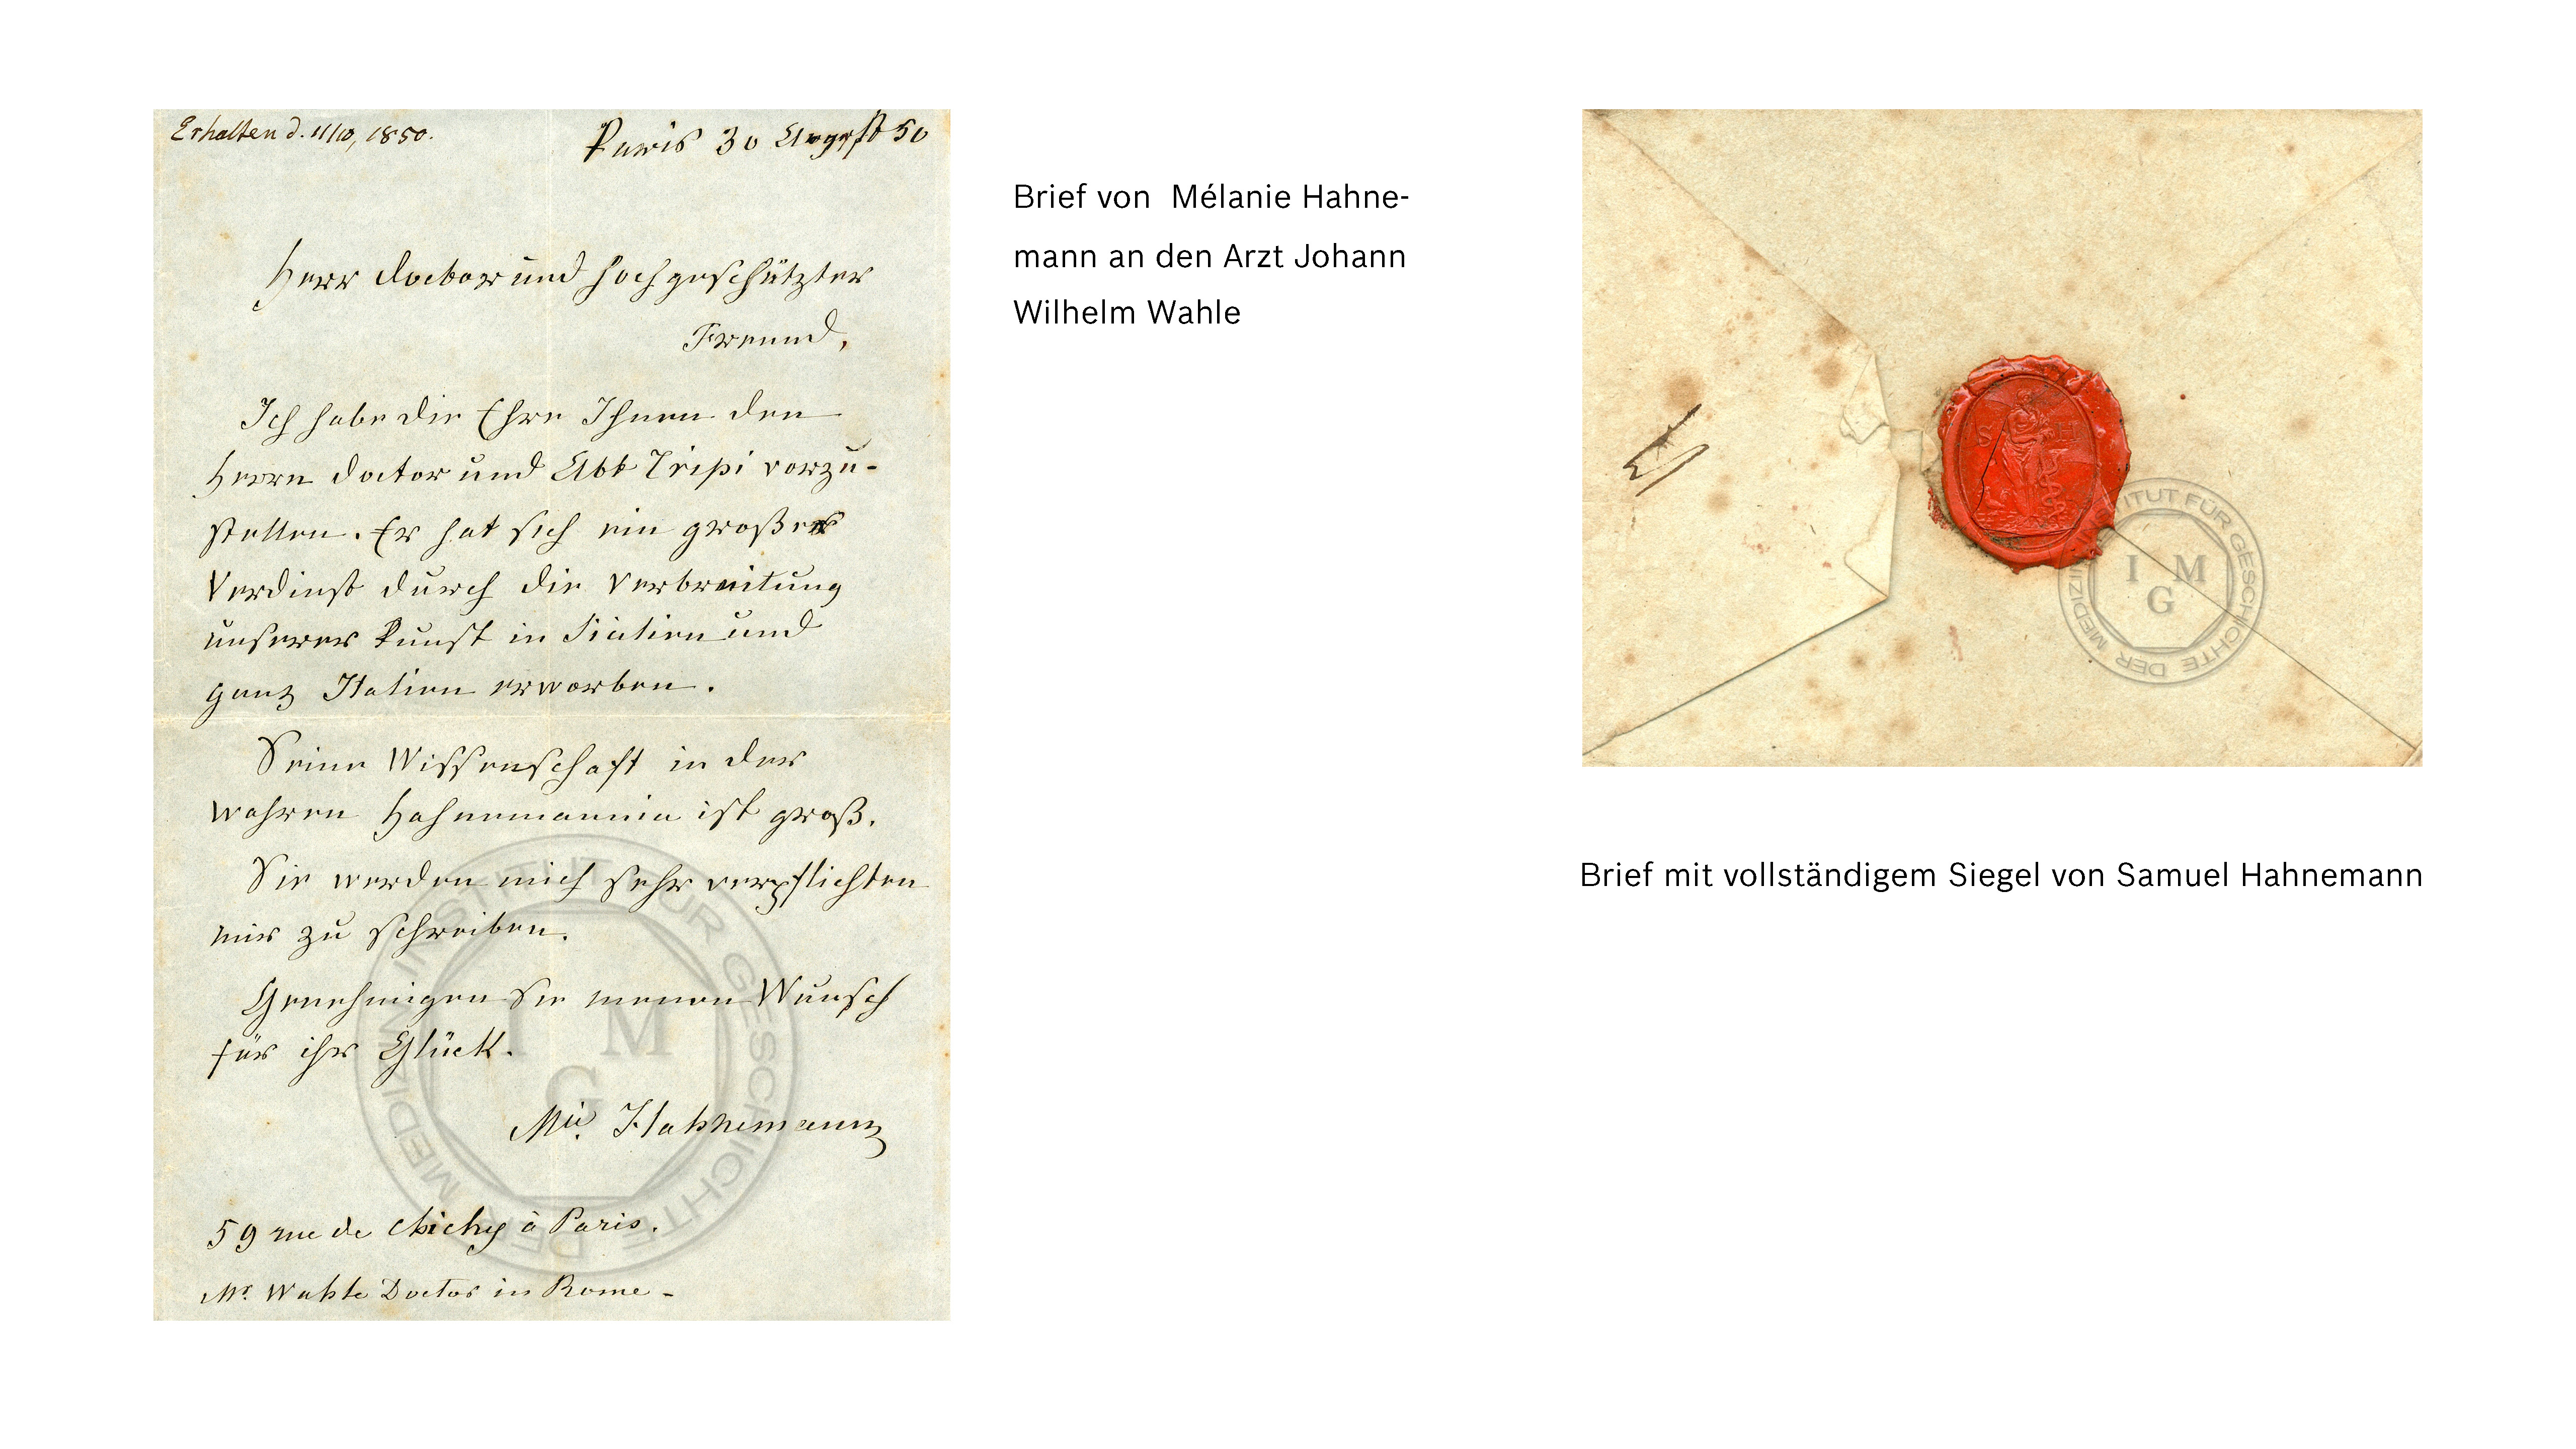 Erhalten d. 11/10, 1850.
Paris 30 August 50
Herr doctor und hochgeschützter
Freund,
Ich habe die Ehre Ihnen den
Herrn doctor und Abt Tripi vorzu-
stellen. Er hat sich ein großes
Verdinst durch die Verbreitung
unserer Kunst in Sicilien und
ganz Italien erworben.
Seine Wissenschaft in der
wahren Hahnemannia ist groß.
Sie werden mich sehr verpflichten
mir zu schreiben.
Genehmigen Sie meinen Wunsch
für ihr Glück.
Hahnemann
59 rue de Clichy à Paris.
Mr. Wahle Doctor in Rome -
INSTITUT FÜR GESCHICHTE DER MEDIZIN
I M
G
Brief von Mélanie Hahne-
mann an den Arzt Johann
Wilhelm Wahle
S H
INSTITUT FÜR GESCHICHTE DER MEDIZIN
I M
G
Brief mit vollständigem Siegel von Samuel Hahnemann